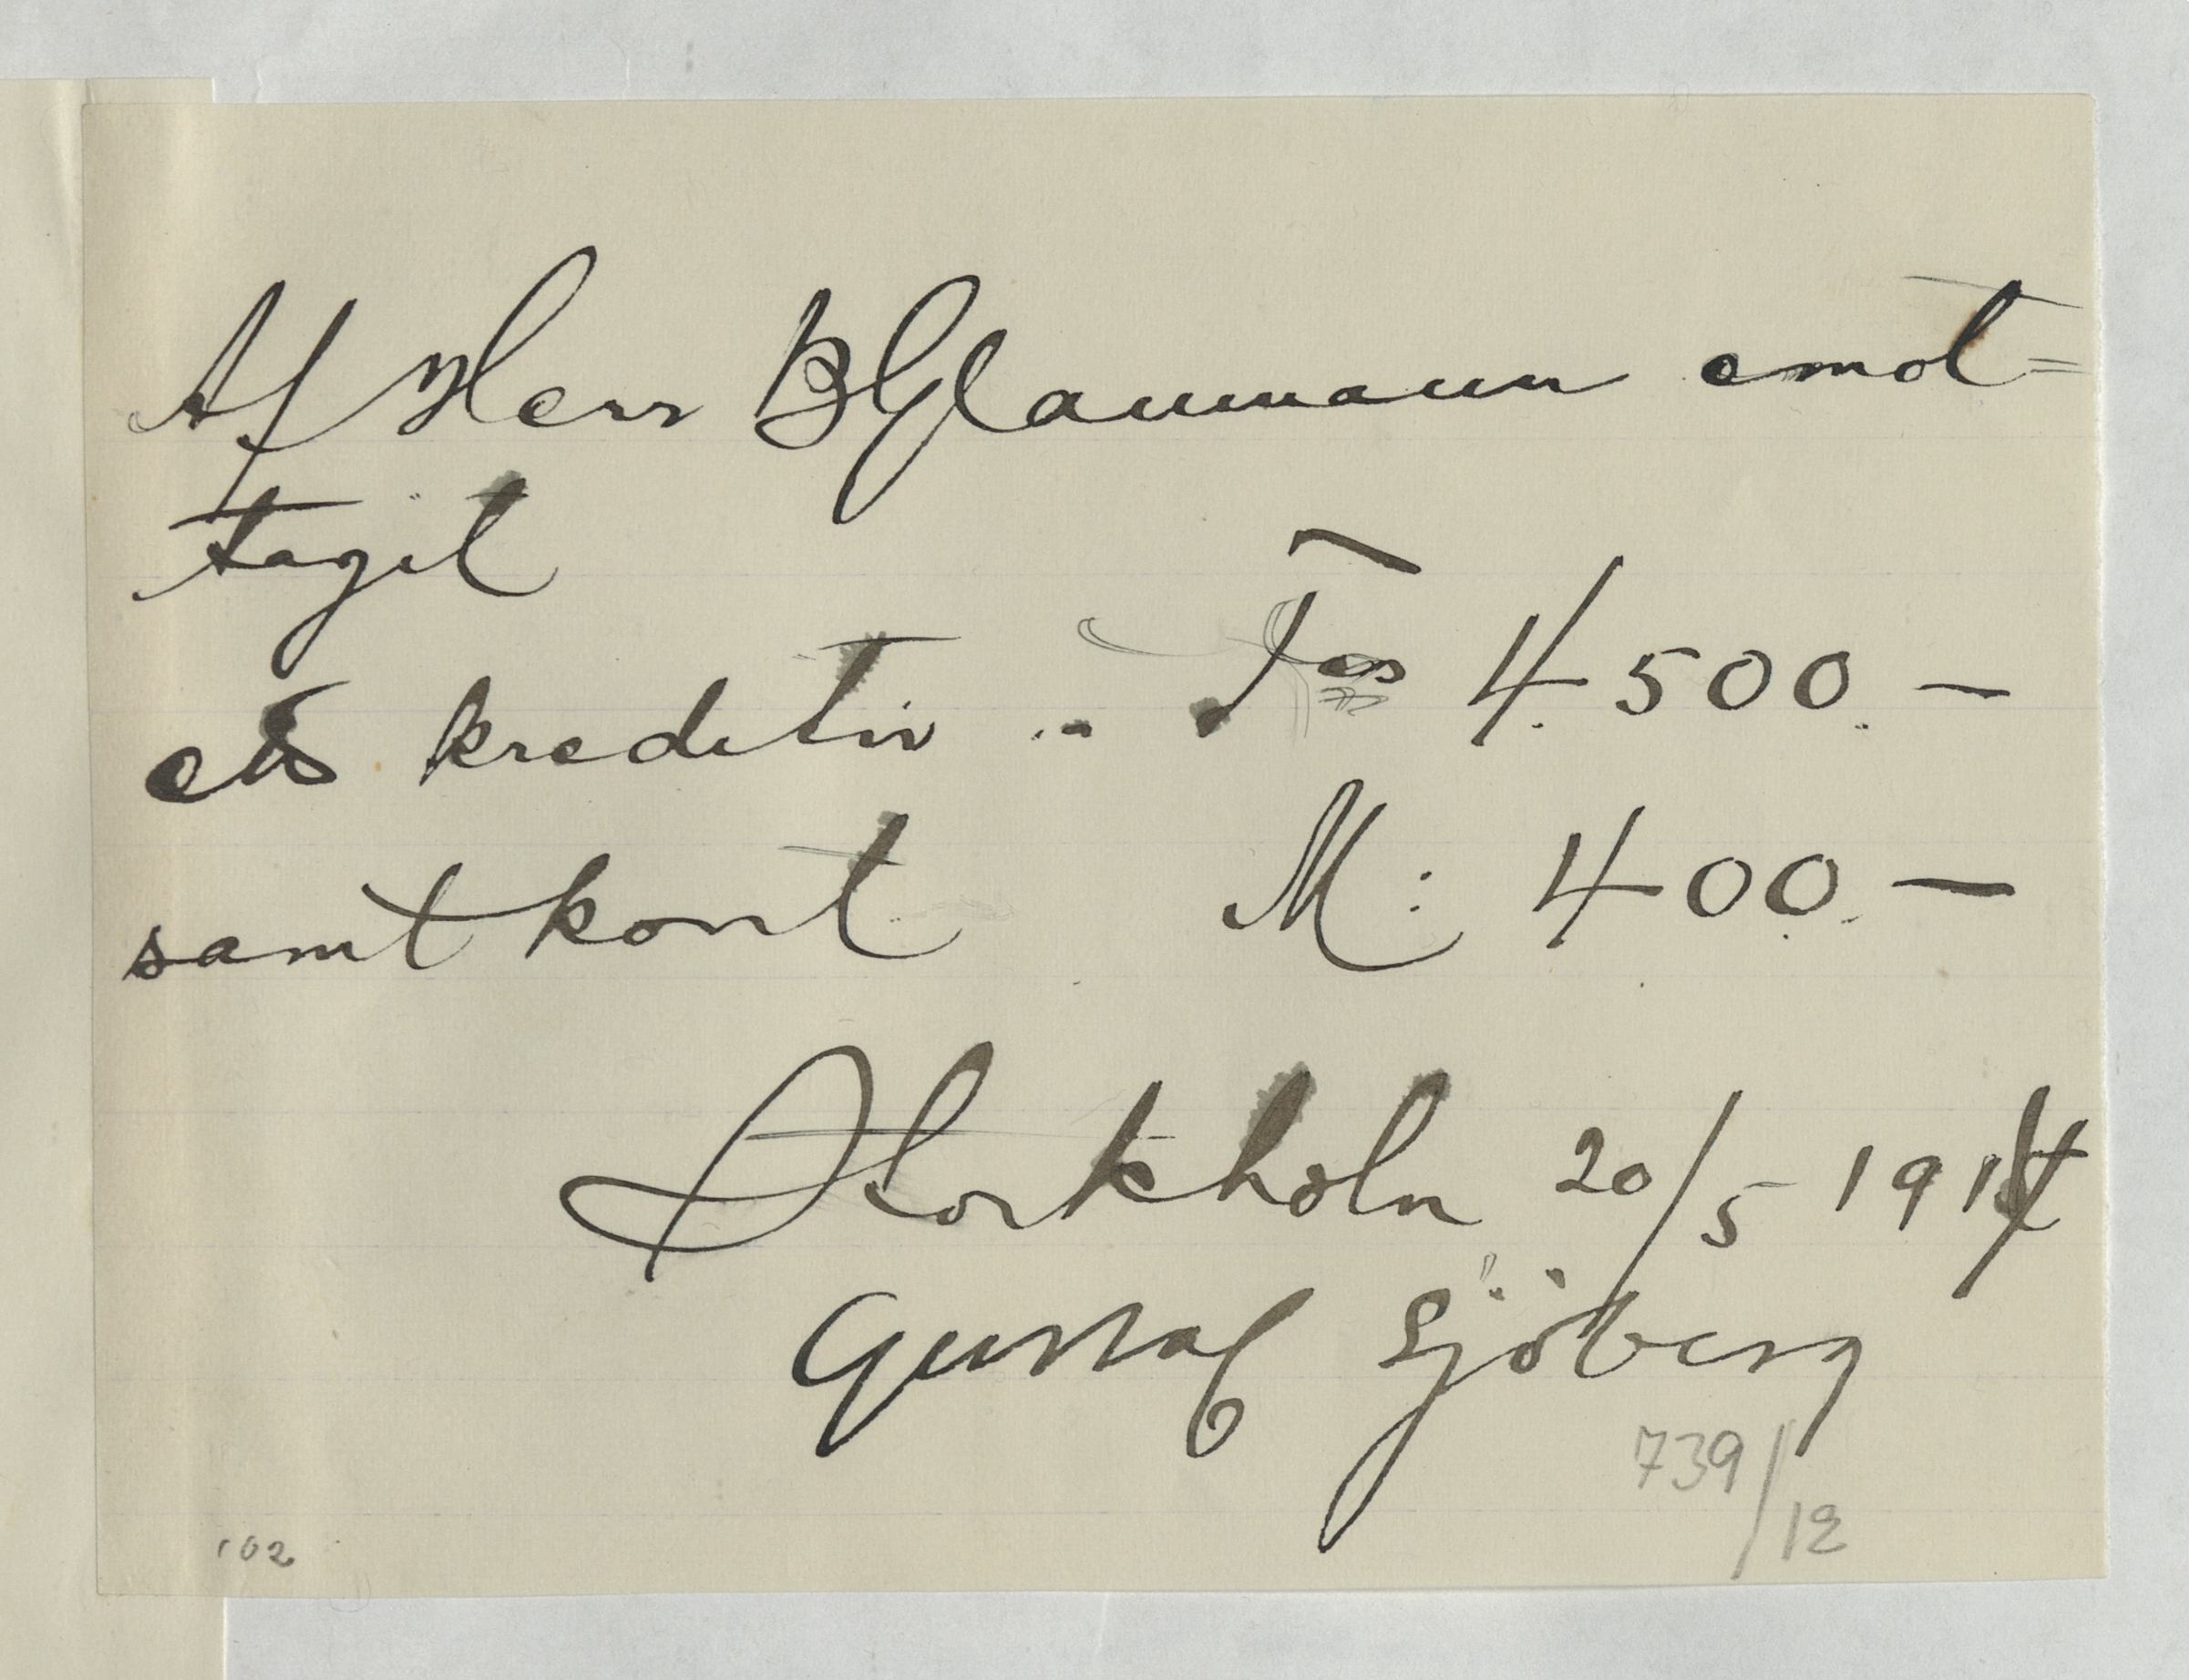 Af Herr B Glaumann emot=
tagit
ett kreditiv .. Fcs 4.500.—
samt kont M: 400.—
Stockholm 20/5 1914
Gustaf Sjöberg
739/12
102